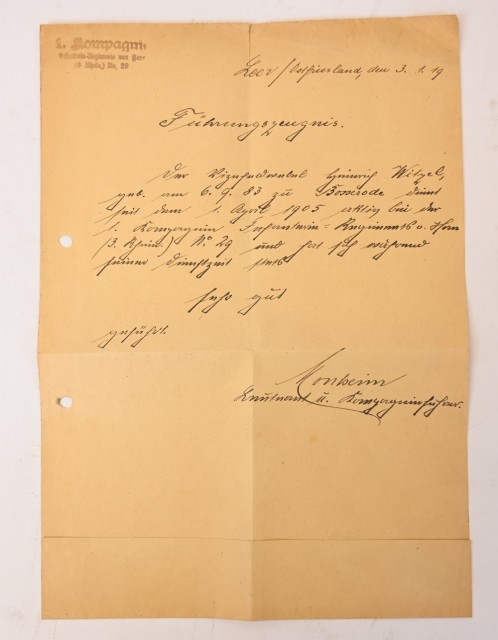 1. Kompagnie
Infanterie-Regiments von Horn
(3. Rhein.) No. 29
Leer/Ostfriesland, den 3. 1. 19
Führungszeugnis.
Der Vizefeldwebel Heinrich Witzel,
geb. am 6. 9. 83 zu Bosserode dient
seit dem 1. April 1905 aktiv bei der
1. Kompagnie Infanterie-Regiments v. Horn
(3. Rhein.) No 29 und hat sich während
seiner Dienstzeit stets
sehr gut
geführt.
Monheim
Leutnant u. Kompagnieführer.